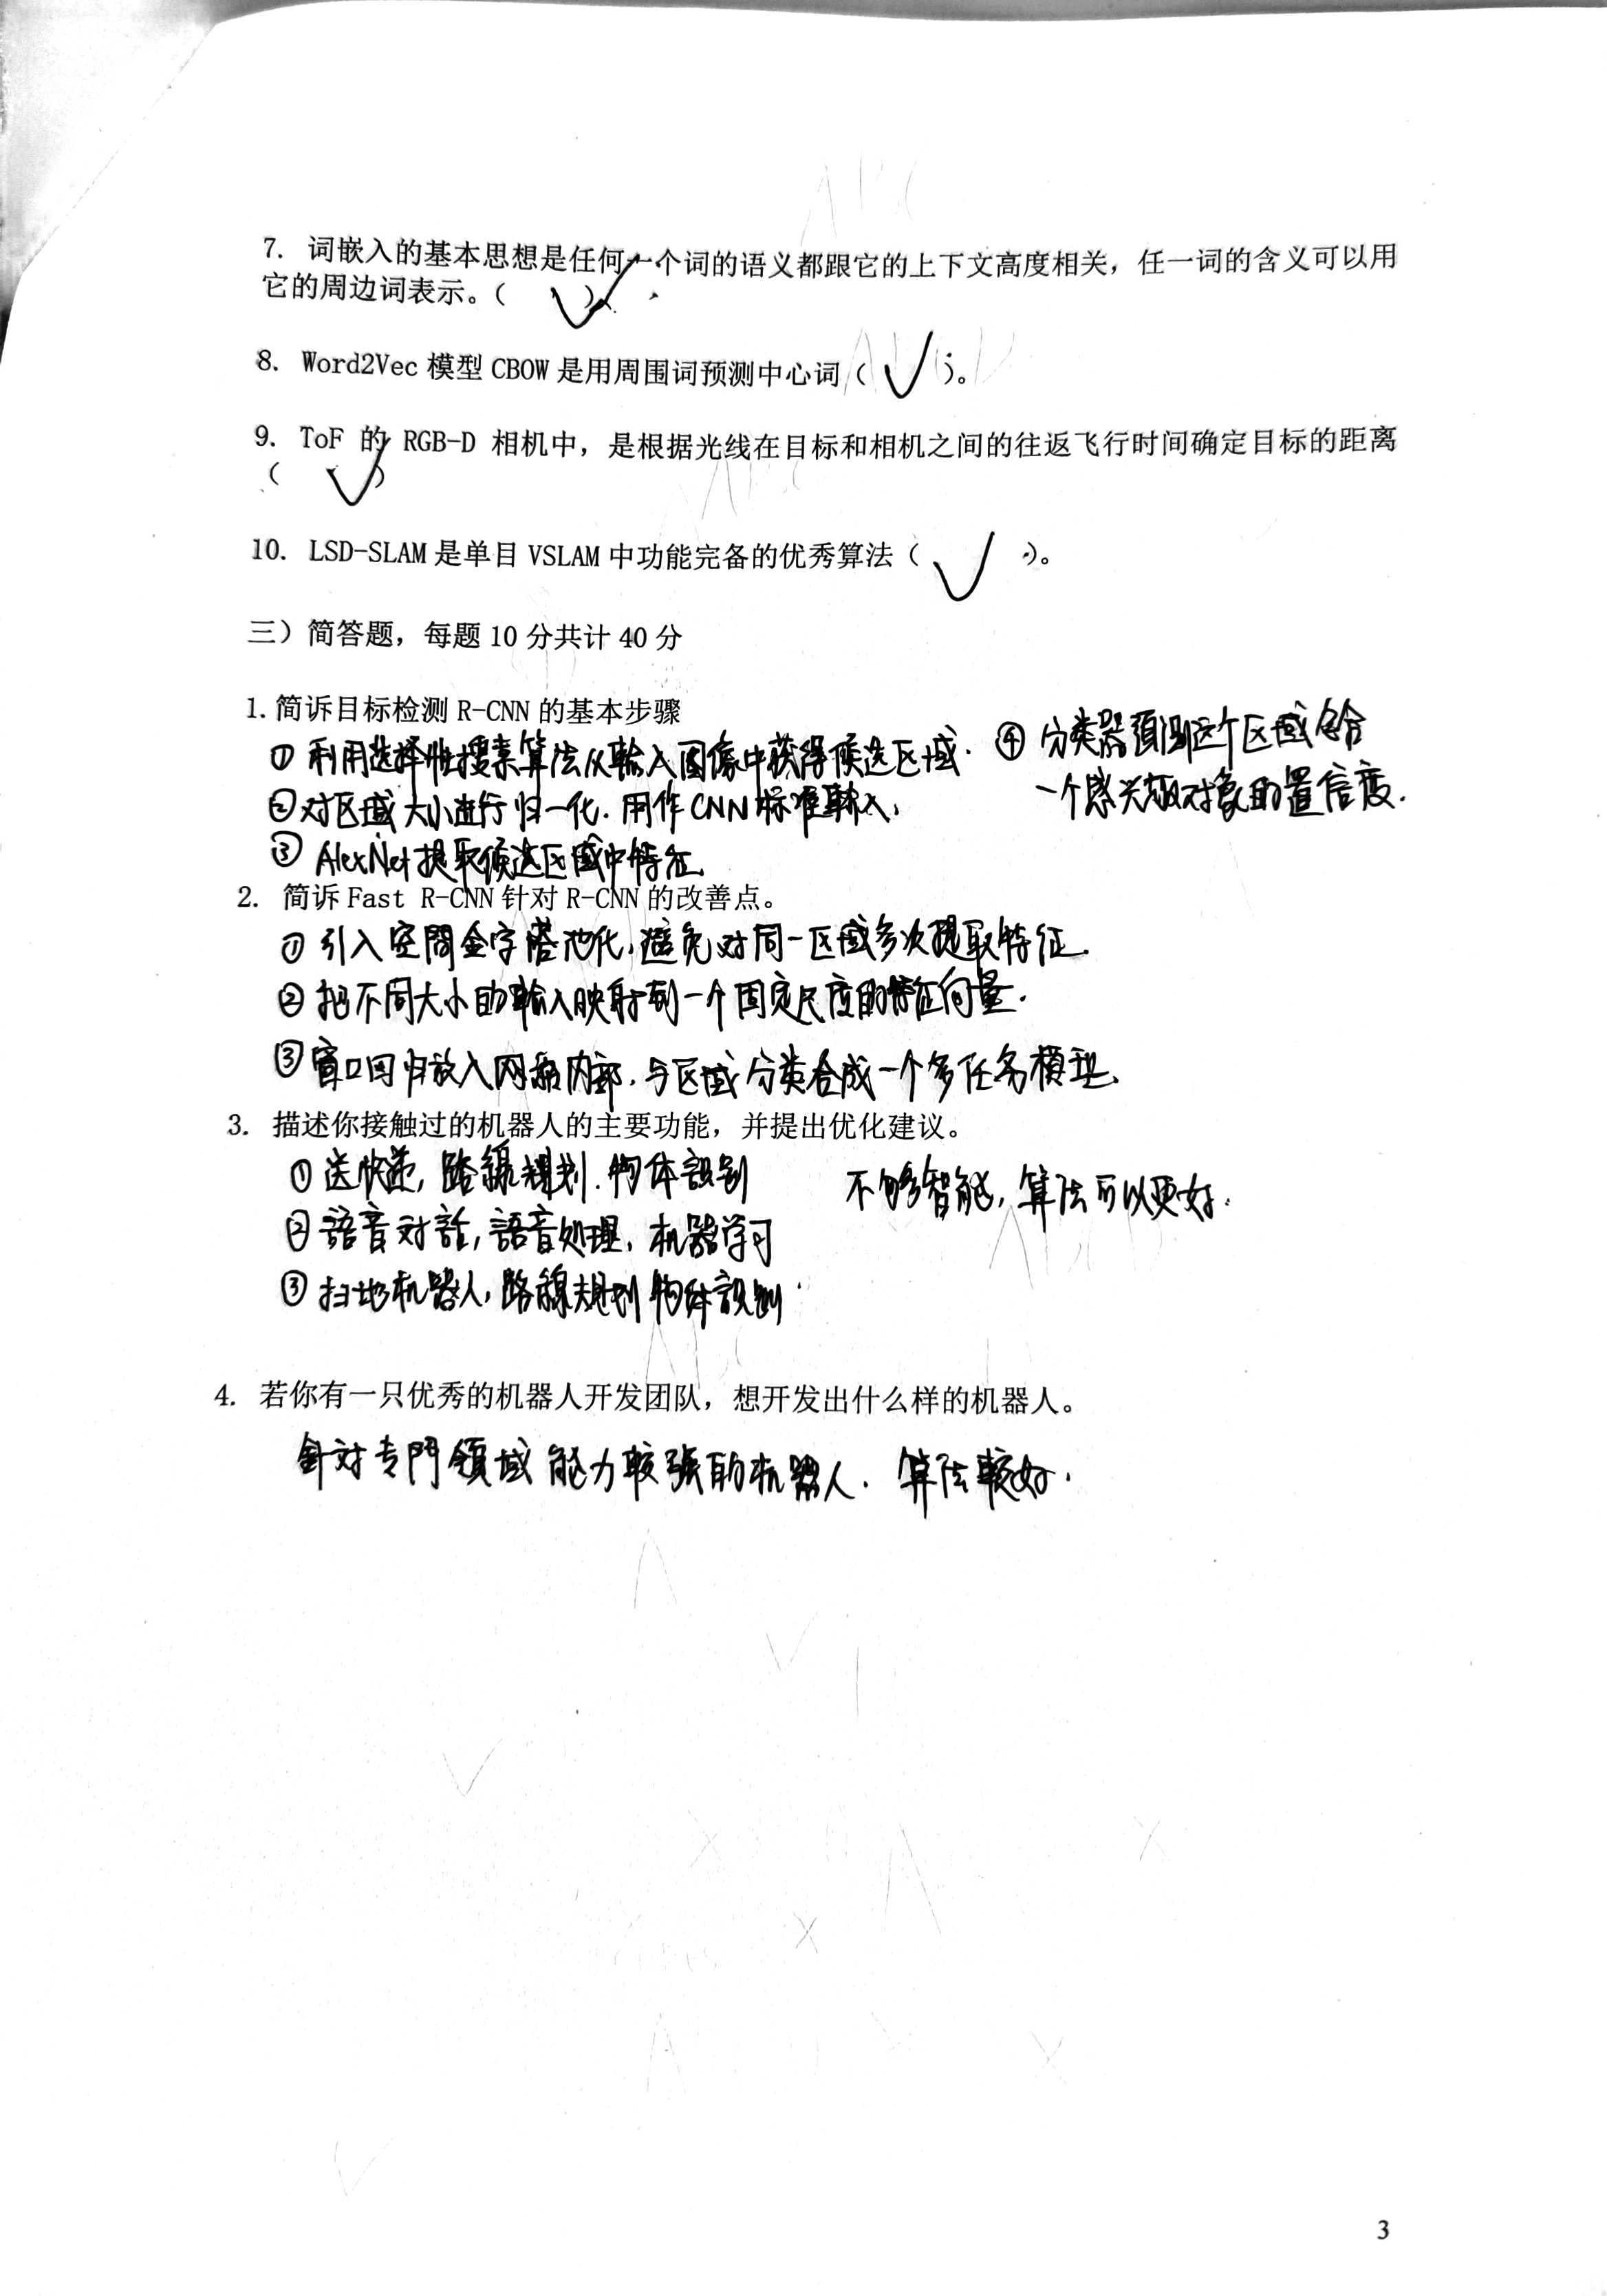 7. 词嵌入的基本思想是任何一个词的语义都跟它的上下文高度相关，任一词的含义可以用
它的周边词表示。（ √ ）
8. Word2Vec 模型 CBOW 是用周围词预测中心词（ √ ）。
9. ToF 的 RGB-D 相机中，是根据光线在目标和相机之间的往返飞行时间确定目标的距离
（ √ ）
10. LSD-SLAM 是单目 VSLAM 中功能完备的优秀算法（ √ ）。
三）简答题，每题 10 分共计 40 分
1. 简诉目标检测 R-CNN 的基本步骤
① 利用选择性搜索算法从輸入图像中获得候选区域.
② 对区域大小进行归一化. 用作CNN标准輸入,
③ AlexNet提取候选区域中特征
④ 分类器預測这个区域包含
一个感兴趣对象的置信度.
2. 简诉 Fast R-CNN 针对 R-CNN 的改善点。
① 引入空間金字塔池化, 避免对同一区域多次提取特征.
② 把不同大小的輸入映射到一个固定尺度的特征向量.
③ 窗口回归放入网络内部, 与区域分类合成一个多任务模型.
3. 描述你接触过的机器人的主要功能，并提出优化建议。
① 送快递, 路線規划. 物体識别
② 語音对話, 語音处理, 机器学习
③ 扫地机器人, 路線規划 物体識别
不够智能, 算法可以更好.
4. 若你有一只优秀的机器人开发团队，想开发出什么样的机器人。
針对专門領域能力較强的机器人. 算法較好.
3